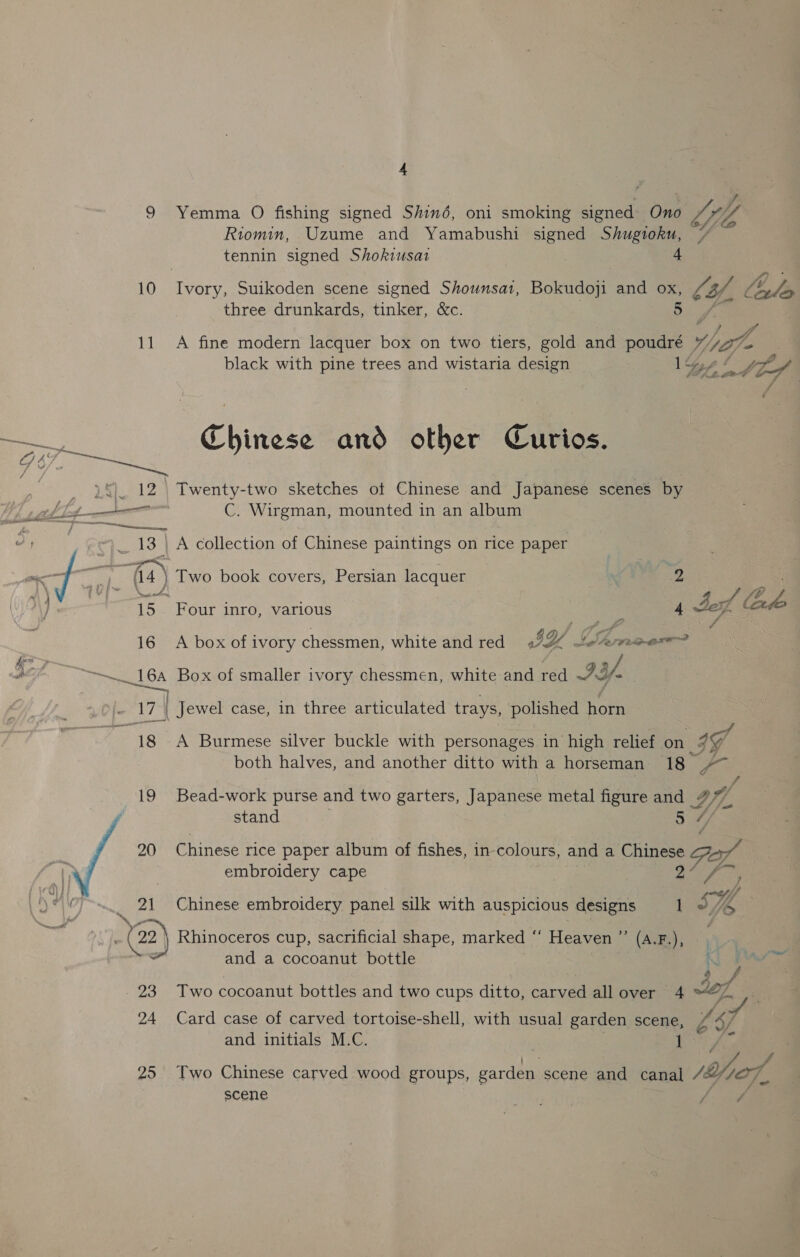 4
9 Yemma O fishing signed Shiné, oni smoking signed Ono
Riomin, Uzume and Yamabushi signed Shugioku,
tennin signed Shokiusai 4
10 Ivory, Suikoden scene signed Shounsai, Bokudoji and ox,
three drunkards, tinker, &c. 5
11 A fine modern lacquer box on two tiers, gold and poudré
black with pine trees and wistaria design 1
Chinese and other Curios.
12 Twenty-two sketches of Chinese and Japanese scenes by
C. Wirgman, mounted in an album
13 A collection of Chinese paintings on rice paper
14 Two book covers, Persian lacquer 2
15 Four inro, various 4
16 A box of ivory chessmen, white and red
16A Box of smaller ivory chessmen, white and red
17 Jewel case, in three articulated trays, polished horn
18 A Burmese silver buckle with personages in high relief on
both halves, and another ditto with a horseman 18
19 Bead-work purse and two garters, Japanese metal figure and
stand 5
20 Chinese rice paper album of fishes, in colours, and a Chinese
embroidery cape 2
21 Chinese embroidery panel silk with auspicious designs 1
22 Rhinoceros cup, sacrificial shape, marked “Heaven” (A.F.),
and a cocoanut bottle
23 Two cocoanut bottles and two cups ditto, carved all over 4
24 Card case of carved tortoise-shell, with usual garden scene,
and initials M.C. 1
25 Two Chinese carved wood groups, garden scene and canal
scene